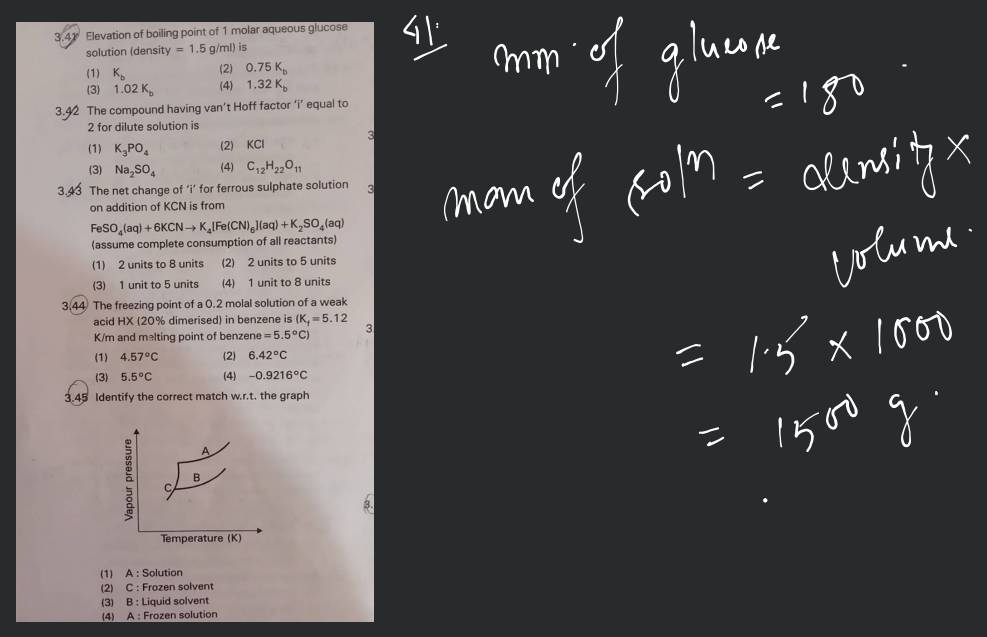 3.41 Elevation of boiling point of 1 molar aqueous glucose
solution (density = 1.5 g/ml) is
(1) K_b (2) 0.75 K_b
(3) 1.02 K_b (4) 1.32 K_b
3.42 The compound having van't Hoff factor 'i' equal to
2 for dilute solution is
(1) K₃PO₄ (2) KCl
(3) Na₂SO₄ (4) C₁₂H₂₂O₁₁
3.43 The net change of 'i' for ferrous sulphate solution
on addition of KCN is from
FeSO₄(aq) + 6KCN → K₄[Fe(CN)₆](aq) + K₂SO₄(aq)
(assume complete consumption of all reactants)
(1) 2 units to 8 units (2) 2 units to 5 units
(3) 1 unit to 5 units (4) 1 unit to 8 units
3.44 The freezing point of a 0.2 molal solution of a weak
acid HX (20% dimerised) in benzene is (K_f = 5.12
K/m and melting point of benzene = 5.5°C)
(1) 4.57°C (2) 6.42°C
(3) 5.5°C (4) –0.9216°C
3.45 Identify the correct match w.r.t. the graph
Vapour pressure
A
B
C
Temperature (K)
(1) A : Solution
(2) C : Frozen solvent
(3) B : Liquid solvent
(4) A : Frozen solution
3
3
3
3.
41:
mm. of glucose
= 180
mam of soln = density ×
volume.
= 1.5 × 1000
= 1500 g.